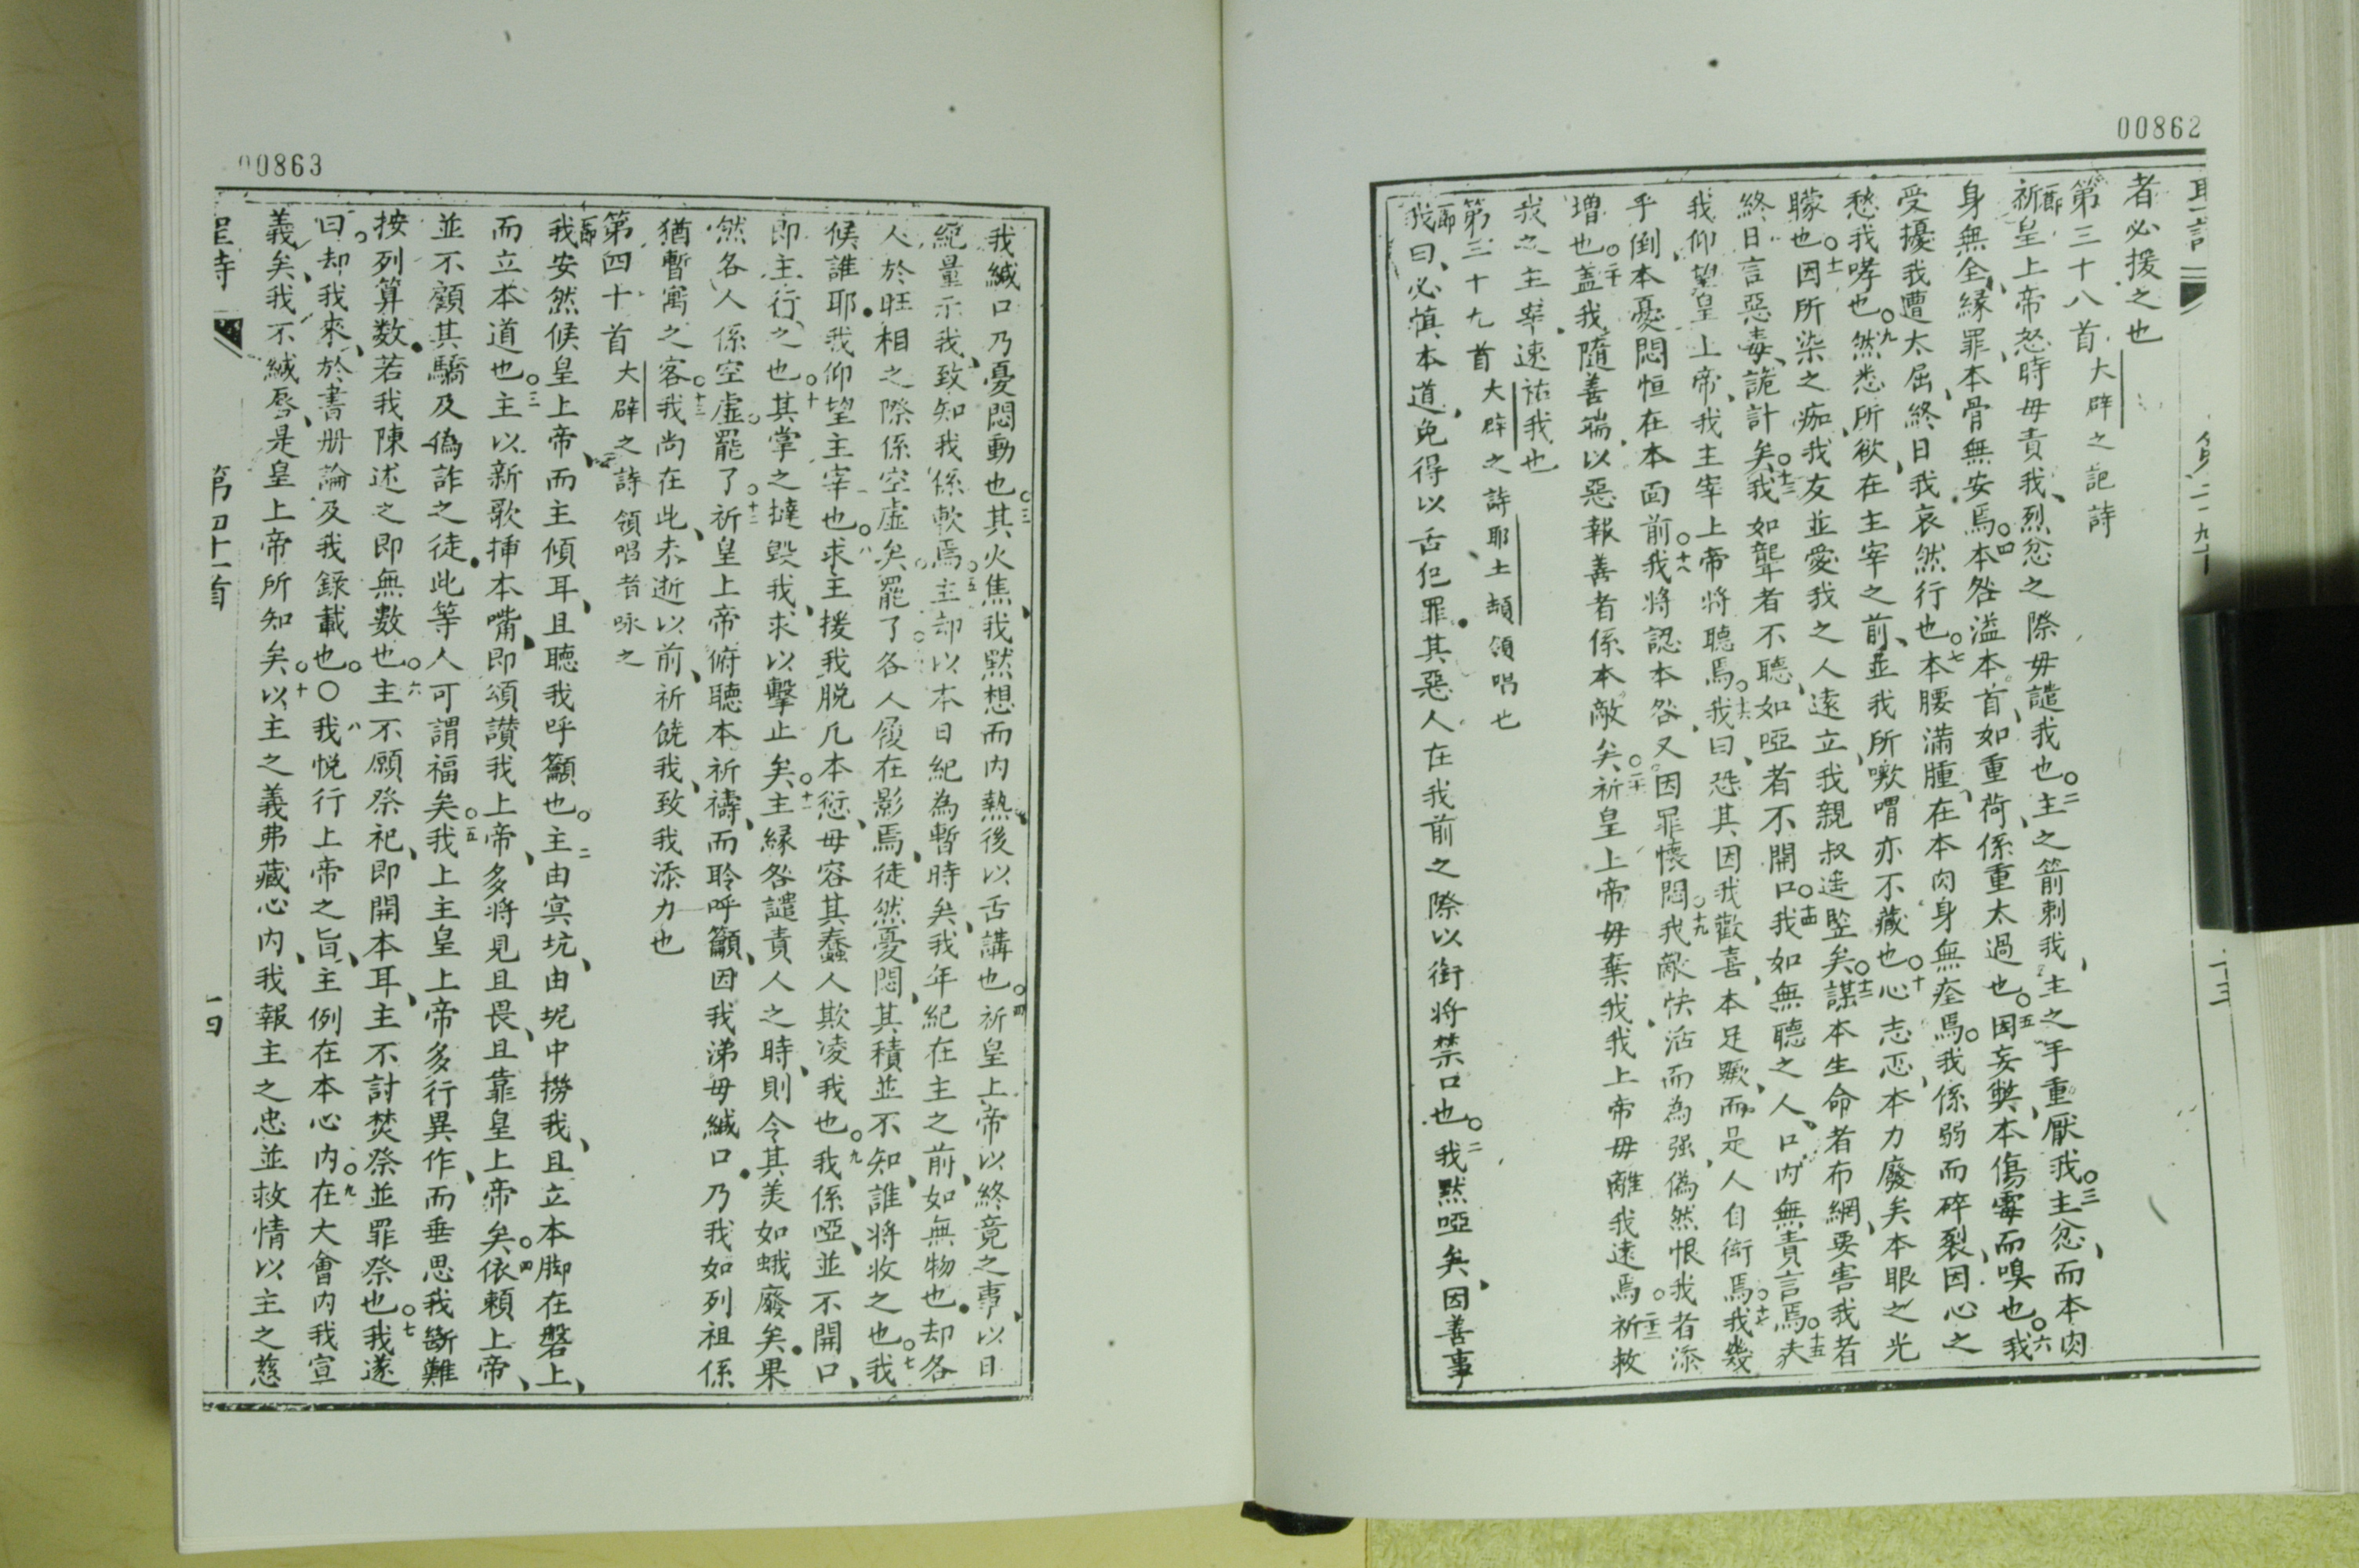 00862
者必援之也
第三十八首 大辟之記詩
一節祈皇上帝怒時毋責我、烈忿之際毋譴我也。二主之箭刺我、主之手重厭我。三主忿、而本肉
身無全、緣罪、本骨無安焉。四本咎溢本首、如重荷、係重太過也。五因妄獘、本傷霉而嗅也。六我
受擾我遭太屈、終日我哀然行也。七本腰滿腫、在本肉身無痊焉。我係弱而碎裂、因心之
愁我哮也。九然悉所欲在主宰之前、並我所嗽喟亦不藏也。十心志恧、本力廢矣本眼之光
矇也。十一因所染之痂、我友並愛我之人遠立、我親叔遙監矣。十二謀本生命者布網、要害我者
終日言惡毒、詭計矣。十三我如聾者不聽、如啞者不開口。十四我如無聽之人、口內無責言焉。十五夫
我仰望皇上帝、我主宰上帝將聽焉。十六我曰、恐其因我歡喜、本足蹶、而是人自衒焉。十七我幾
乎倒、本憂悶恒在本面前。十八我將認本咎、又因罪懷悶。十九我敵快活而為强、偽然恨我者添
增也。二十盖我隨善端、以惡報善者係本敵矣。二十一祈皇上帝毋棄我、我上帝毋離我遠焉。二十二祈救
我之主宰、速祐我也
第三十九首 大辟之詩、耶土頡領唱也
一節我曰、必慎本道、免得以舌犯罪。其惡人在我前之際、以銜將禁口也。二我默啞矣、因善事
第三十九首
十三
00863
我緘口、乃憂悶動也。三其火焦、我默想而內熱、後以舌講也。四祈皇上帝以終竟之事、以日
紀量示我、致知我係軟焉。五主却以本日紀為暫時矣、我年紀在主之前、如無物也。却各
人於旺相之際係空虛矣。罷了。各人履在影焉、徒然憂悶、其積並不知、誰將收之也。七我
候誰耶。我仰望主宰也。八求主援我脫凢本愆、毋容其蠢人欺凌我也。九我係啞、並不開口、
即主行之也。十其掌之撻毀我、求以擊止矣。十一主緣咎譴責人之時、則令其美如蛾廢矣。果
然各人係空虛。罷了。十二祈皇上帝俯聽本祈禱、而聆呼籲、因我涕毋緘口。乃我如列祖係
猶暫寓之客。十三我尚在此、未逝以前、祈饒我、致我添力也
第四十首 大辟之詩領唱者咏之
一節我安然候皇上帝、而主傾耳、且聽我呼籲也。二主由㝠坑、由坭中撈我、且立本脚在磐上、
而立本道也。三主以新歌揷本嘴、即頌讚我上帝、多將見且畏、且靠皇上帝矣。四依賴上帝、
並不顧其驕及偽詐之徒。此等人可謂福矣。五我上主皇上帝多行異作、而垂思我斷難
按列算数。若我陳述之即無數也。六主不願祭祀、即開本耳、主不討焚祭並罪祭也。七我遂
曰、却我來、於書册論及我錄載也。〇八我悅行上帝之旨、主例在本心內。九在大會內我宣
義矣、我不緘唇、是皇上帝所知矣。十以主之義弗藏心內、我報主之忠並救情、以主之慈
聖詩
第四十首
十四